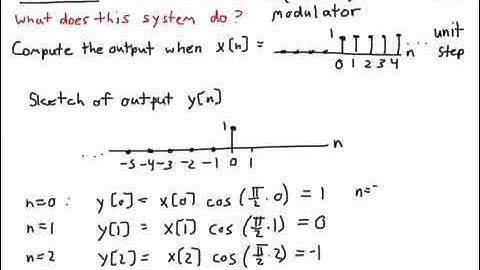 What does this system do? modulator
Compute the output when x[n] = 1 0 1 2 3 4 n ... unit step
Sketch of output y[n]
1
... -5 -4 -3 -2 -1 0 1 n
n=0: y[0] = x[0] cos(π/2 · 0) = 1 n=
n=1 y[1] = x[1] cos(π/2 · 1) = 0
n=2 y[2] = x[2] cos(π/2 · 2) = -1